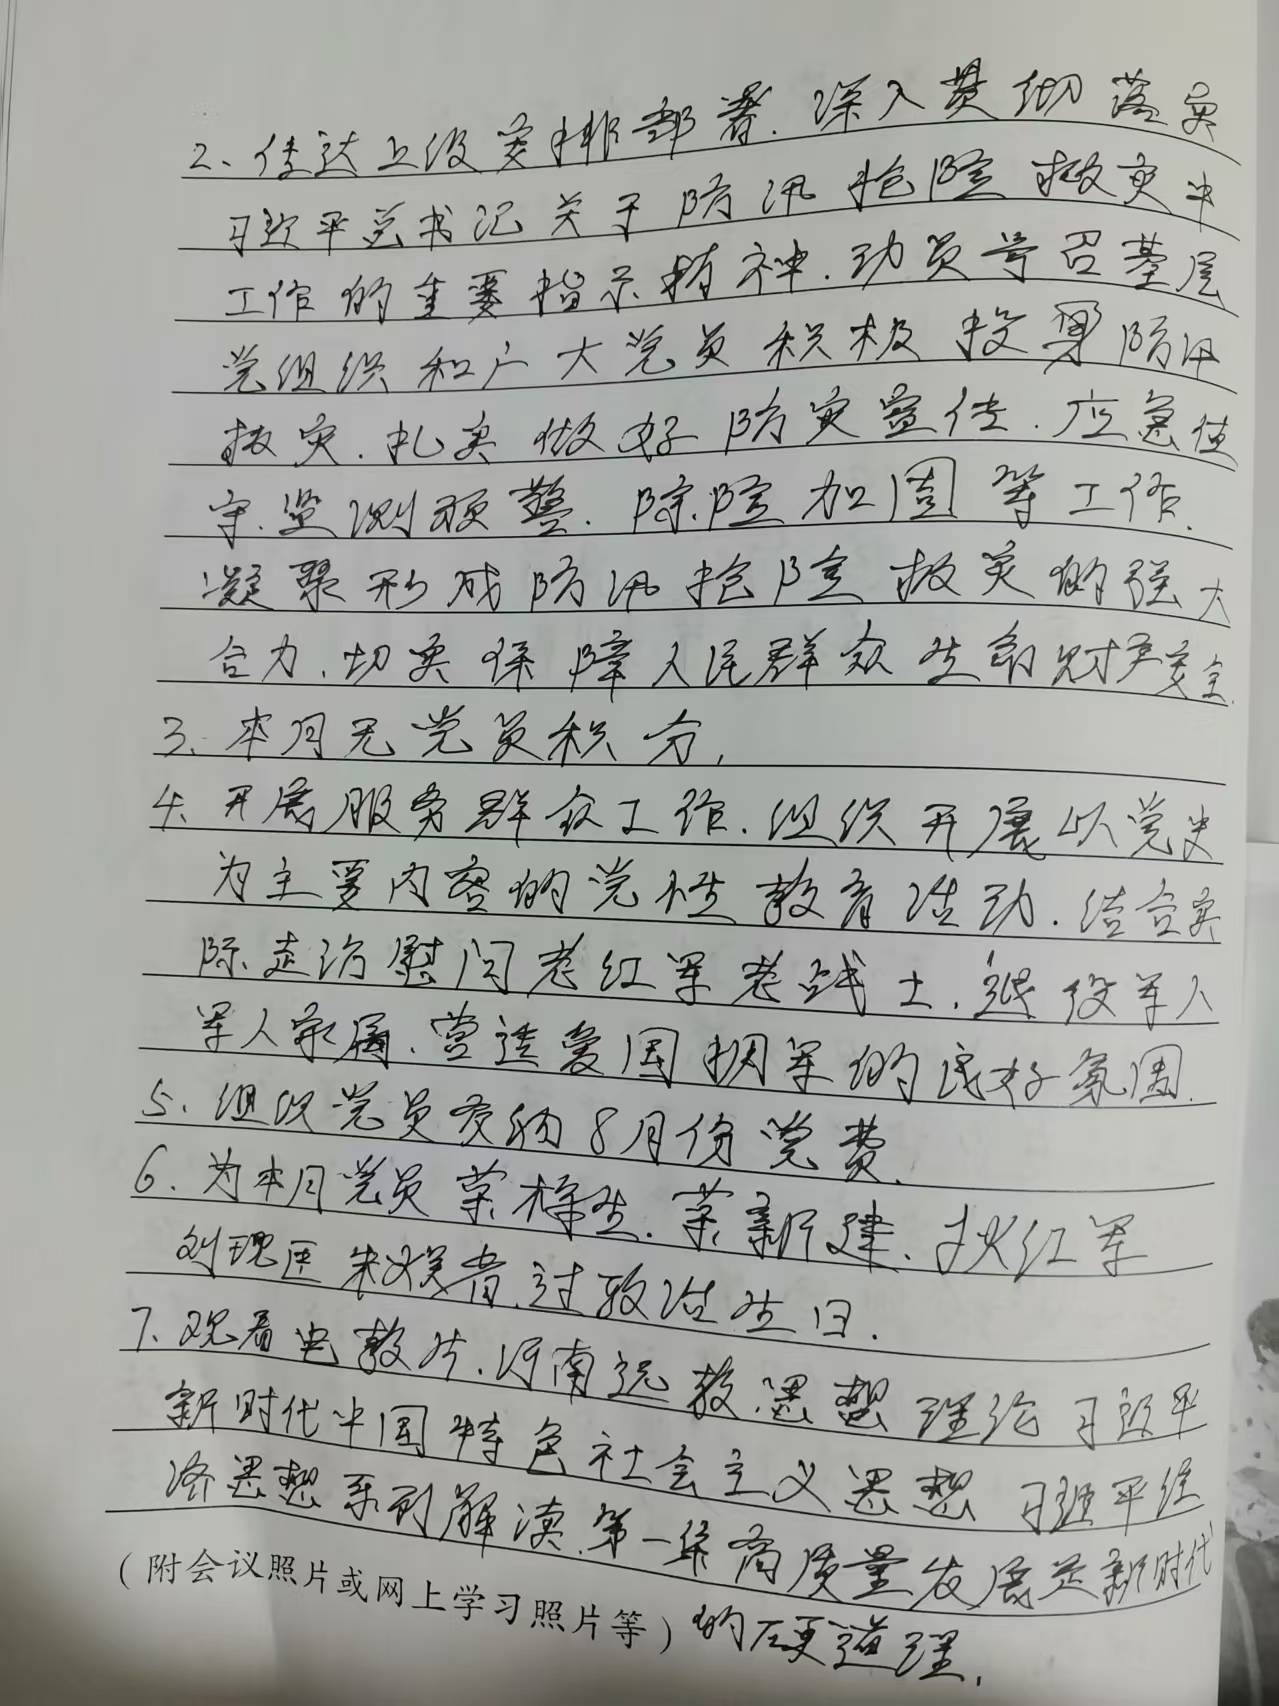 2、传达上级安排部署.深入贯彻落实
习近平总书记关于防汛抢险救灾
工作的重要指示精神.动员号召基层
党组织和广大党员积极投身防汛
救灾.扎实做好防灾宣传.应急值
守.监测预警.除险加固等工作.
凝聚形成防汛抢险救灾的强大
合力.切实保障人民群众生命财产安全.
3、本月无党员积分,
4、开展服务群众工作.组织开展以党史
为主要内容的党性教育活动.结合实
际走访慰问老红军老战士.退役军人
军人家属.营造爱国拥军的良好氛围.
5、组织党员交纳8月份党费.
6、为本月党员菜梓生.菜新建、红军
刘现臣 朱 过政治生日.
7、观看电教片.河南远教思想理论习近平
新时代中国特色社会主义思想 习近平经
济思想系列解读.第一集高质量发展是新时代
(附会议照片或网上学习照片等)的硬道理.